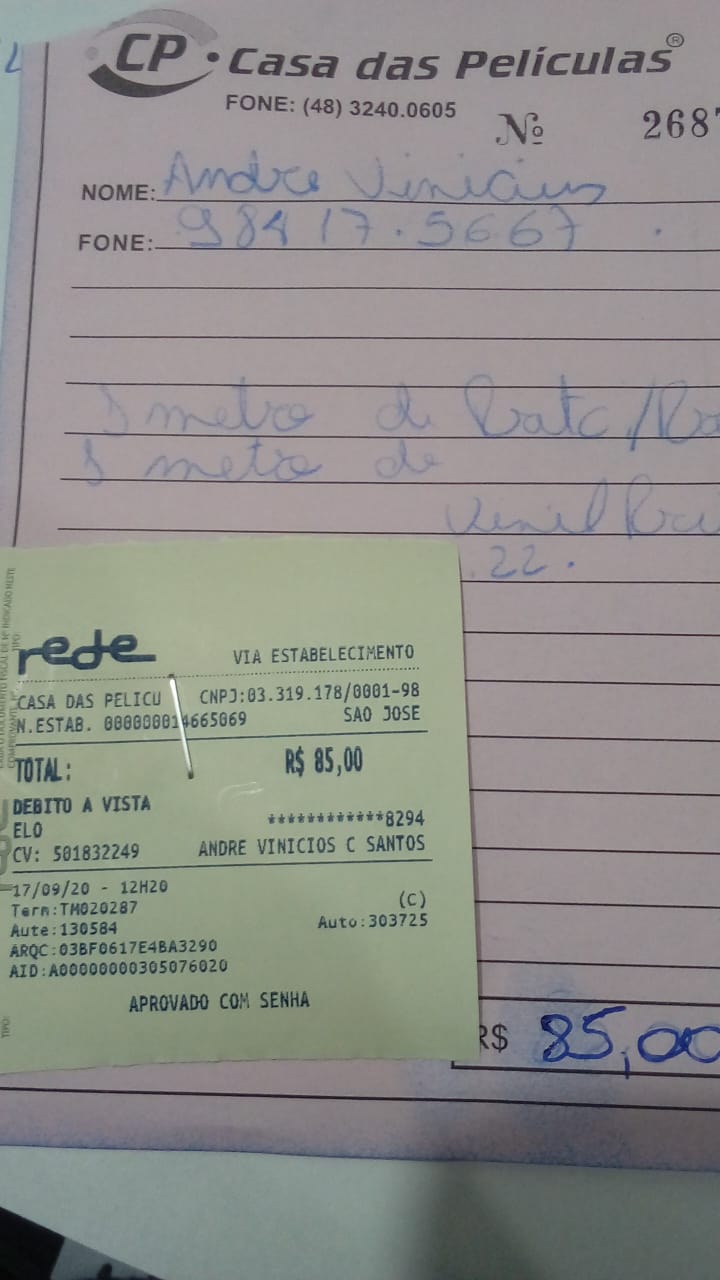 CP · Casa das Películas®
FONE: (48) 3240.0605
Nº 268
NOME: Andre Vinicius
FONE: 98417.5667
1 metro de
1 metro de
Vinil
22.
rede
VIA ESTABELECIMENTO
CASA DAS PELICU CNPJ:03.319.178/0001-98
N.ESTAB. 000000014665069 SAO JOSE
TOTAL: R$ 85,00
DEBITO A VISTA
ELO ************8294
CV: 501832249 ANDRE VINICIOS C SANTOS
17/09/20 - 12H20
Term:TM020287 (C)
Aute:130584 Auto:303725
ARQC:03BF0617E4BA3290
AID:A00000000305076020
APROVADO COM SENHA
R$ 85,00